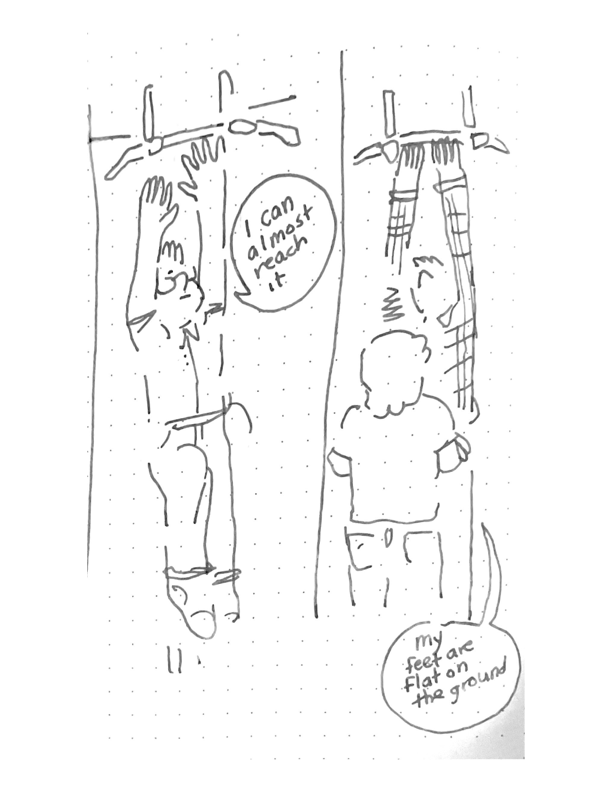 I can
almost
reach
it
my
feet are
flat on
the ground